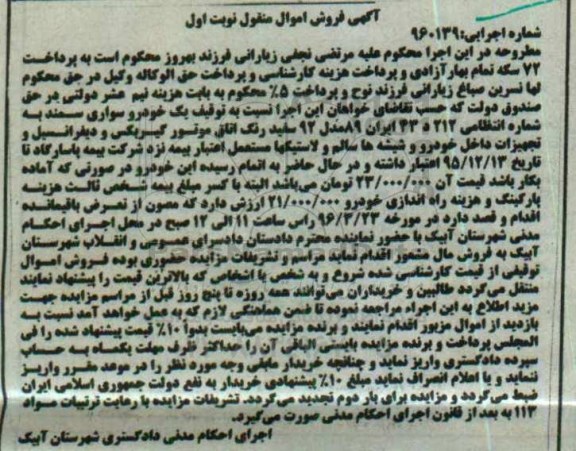 آگهی فروش اموال منقول نوبت اول
شماره اجرایی:۹۶۰۱۳۹
مطروحه در این اجرا محکوم علیه مرتضی نجفی زیارانی فرزند بهروز محکوم است به پرداخت
۷۲ سکه تمام بهار آزادی و پرداخت هزینه کارشناسی و پرداخت حق الوکاله وکیل در حق محکوم
لها نسرین صباغ زیارانی فرزند نوح و پرداخت ۵٪ محکوم به بابت هزینه نیم عشر دولتی در حق
صندوق دولت که حسب تقاضای خواهان این اجرا نسبت به توقیف یک خودرو سواری سمند به
شماره انتظامی ۲۱۲ د ۴۳ ایران ۸۹مدل ۹۲ سفید رنگ اتاق موتور گیربکس و دیفرانسیل و
تجهیزات داخل خودرو و شیشه ها سالم و لاستیکها مستعمل اعتبار بیمه نزد شرکت بیمه پاسارگاد تا
تاریخ ۹۵/۱۲/۱۳ اعتبار داشته و در حال حاضر به اتمام رسیده این خودرو در صورتی که آماده
بکار باشد قیمت آن ۲۳/۰۰۰/۰۰۰ تومان می‌باشد البته با کسر مبلغ بیمه شخص ثالث هزینه
پارکینگ و هزینه راه اندازی خودرو ۲۱/۰۰۰/۰۰۰ ارزش دارد که مصون از تعرض باقیمانده
اقدام و قصد دارد در مورخه ۹۶/۳/۲۳ راس ساعت ۱۱ الی ۱۲ صبح در محل اجرای احکام
مدنی شهرستان آبیک با حضور نماینده محترم دادستان دادسرای عمومی و انقلاب شهرستان
آبیک به فروش مال مشعور اقدام نماید مراسم و تشریفات مزایده حضوری بوده فروش اموال
توقیفی از قیمت کارشناسی شده شروع و به شخص یا اشخاص که بالاترین قیمت را پیشنهاد نمایند
منتقل می‌گردد طالبین و خریداران می‌توانند همه روزه تا پنج روز قبل از مراسم مزایده جهت
مزید اطلاع به این اجراء مراجعه نموده تا ضمن هماهنگی لازم که به عمل خواهد آمد نسبت به
بازدید از اموال مزبور اقدام نمایند و برنده مزایده می‌بایست بدوا ۱۰٪ قیمت پیشنهاد شده را فی
المجلس پرداخت و برنده مزایده بایستی الباقی آن را حداکثر ظرف مهلت یکماه به حساب
سپرده دادگستری واریز نماید و چنانچه خریدار مابقی وجه مورد نظر را در موعد مقرر واریز
ننماید و یا اعلام انصراف نماید مبلغ ۱۰٪ پیشنهادی خریدار به نفع دولت جمهوری اسلامی ایران
ضبط می‌گردد و مزایده برای بار دوم تجدید می‌گردد. تشریفات مزایده با رعایت ترتیبات مواد
۱۱۳ به بعد از قانون اجرای احکام مدنی صورت می‌گیرد.
اجرای احکام مدنی دادگستری شهرستان آبیک